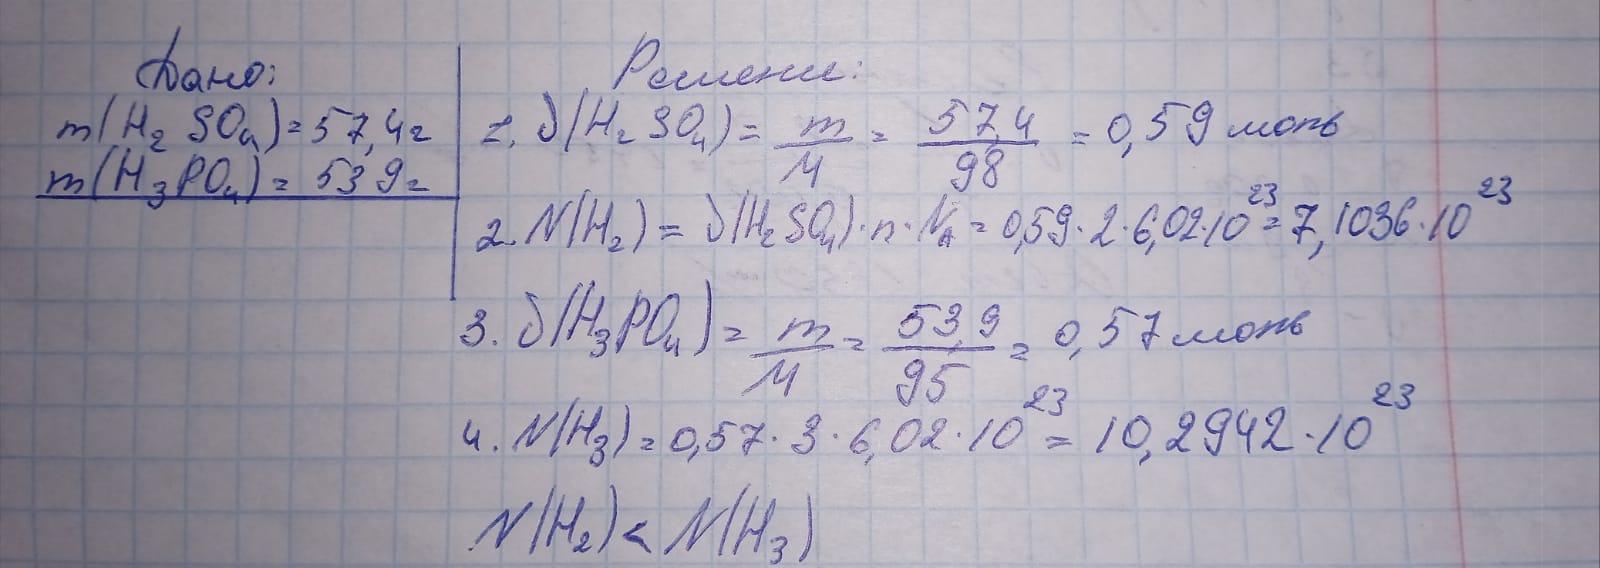 Дано:
m(H₂SO₄)=57,4г
m(H₃PO₄)=53,9г
Решени:
1. ϑ(H₂SO₄)= m/M = 57,4/98 = 0,59 моль
2. N(H₂)= ϑ(H₂SO₄)·n·Nₐ=0,59·2·6,02·10²³=7,1036·10²³
3. ϑ(H₃PO₄)= m/M = 53,9/95 = 0,57 моль
4. N(H₃)=0,57·3·6,02·10²³=10,2942·10²³
N(H₂)<N(H₃)